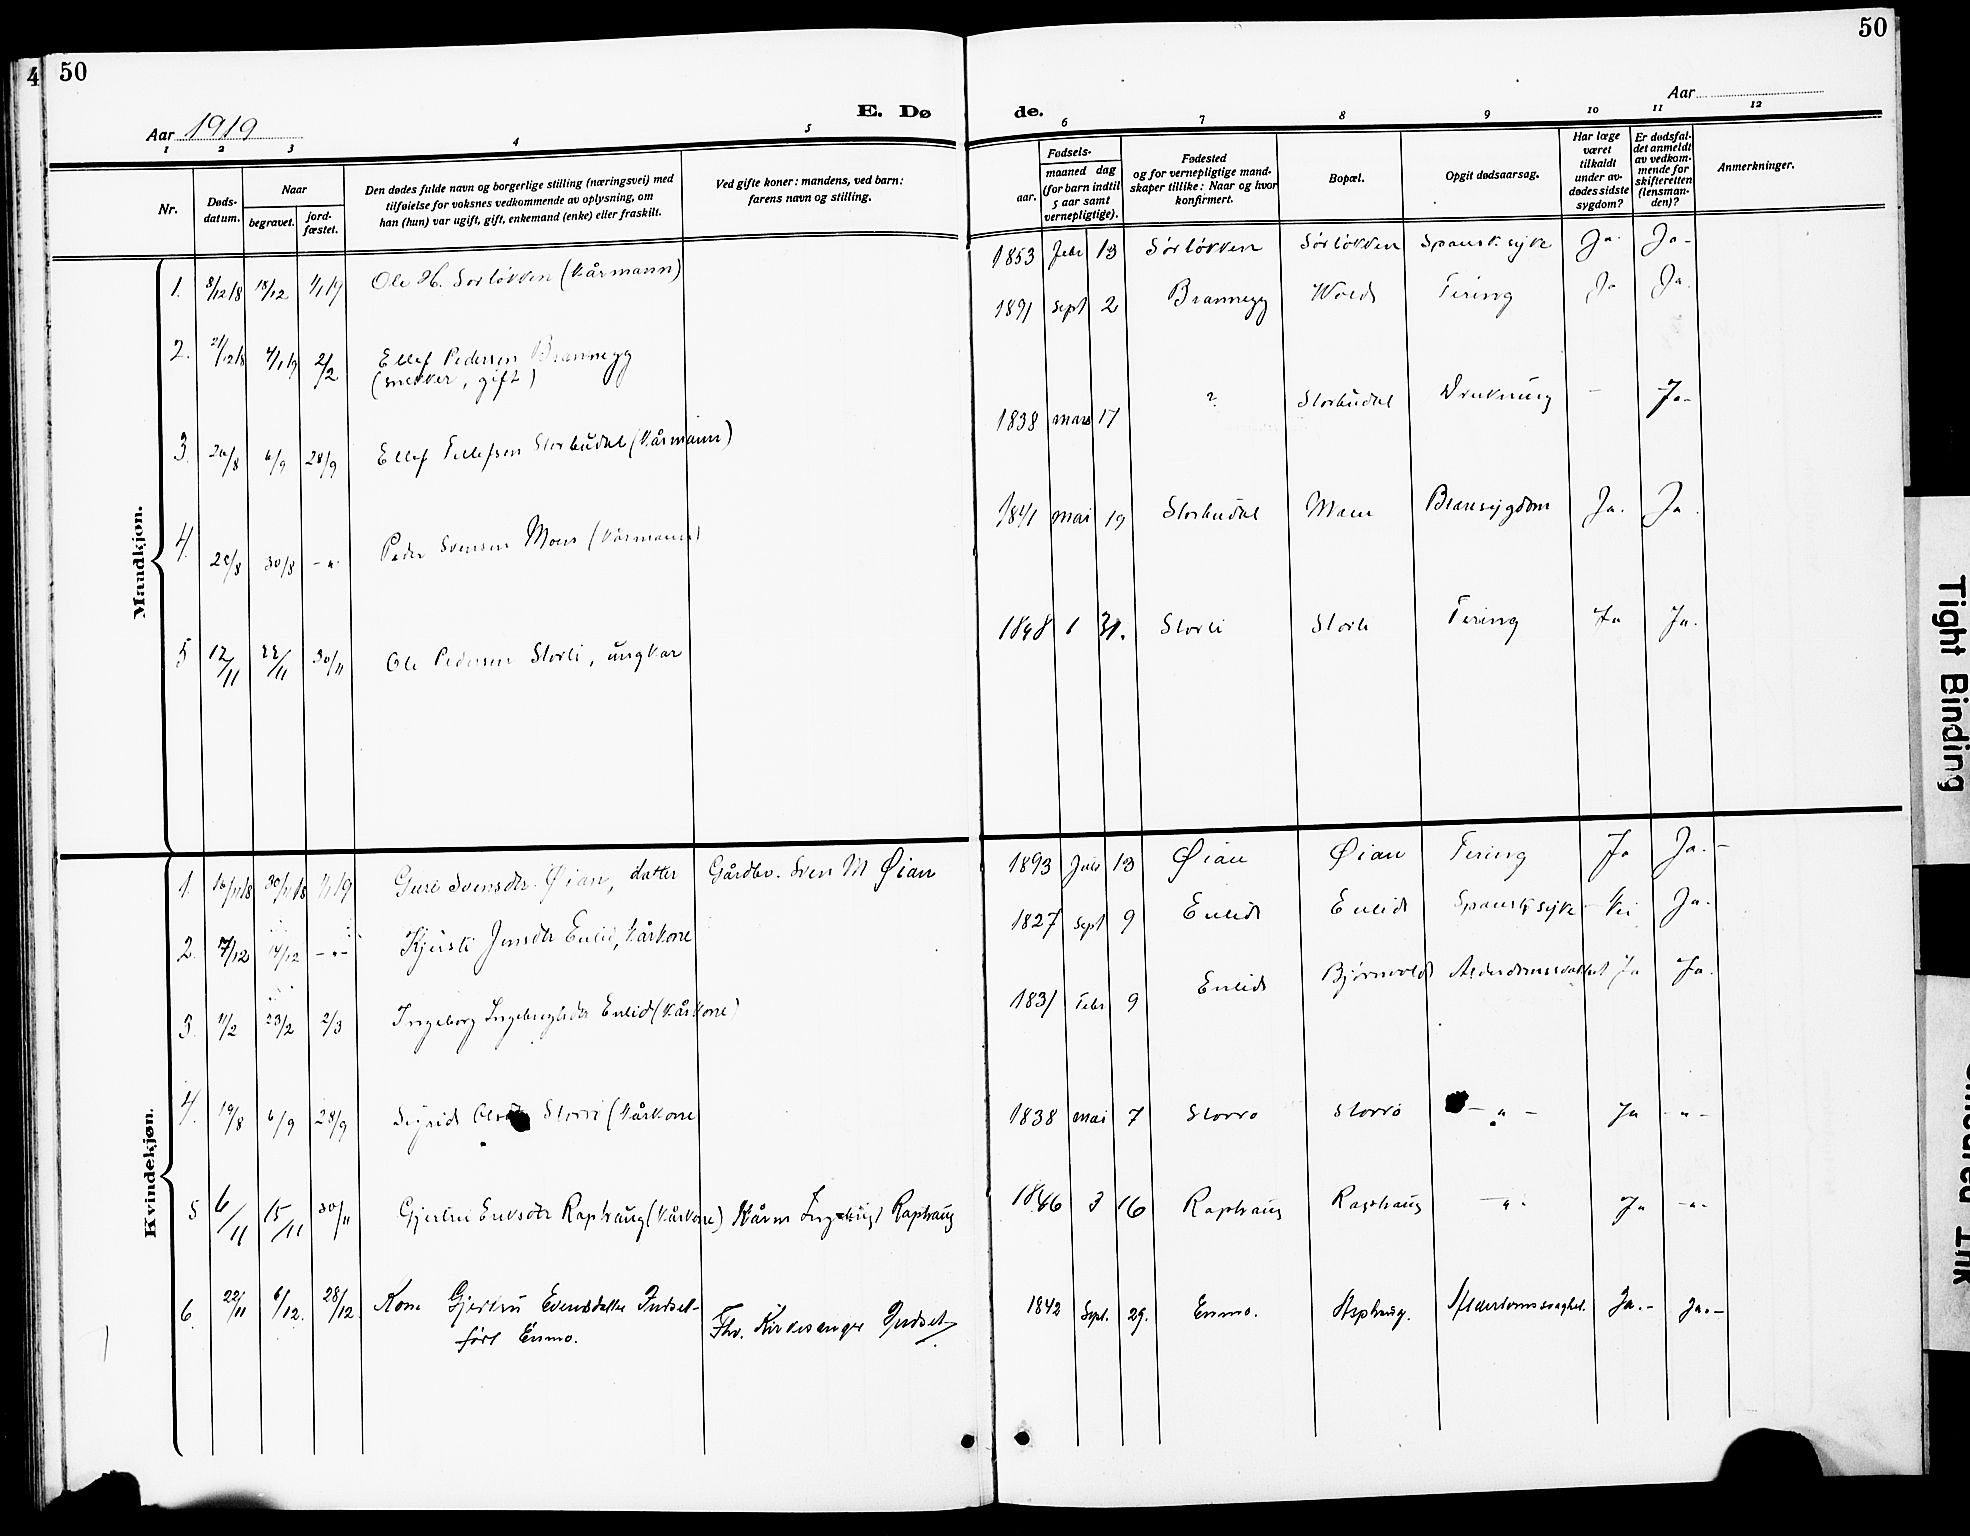 4 50
50
Aar 1919
E. Dø
de.
Aar
1 2 3 4 5
6 7 8 9 10 11 12
Nr.
Døds-
datum.
Naar
begravet.
jord-
fæstet.
Den dødes fulde navn og borgerlige stilling (næringsvei) med
tilføielse for voksnes vedkommende av oplysning, om
han (hun) var ugift, gift, enkemand (enke) eller fraskilt.
Ved gifte koner: mandens, ved barn:
farens navn og stilling.
Fødsels-
aar.
maaned dag
(for barn indtil
5 aar samt
vernepligtige).
Fødested
og for vernepligtige mand-
skaper tillike: Naar og hvor
konfirmert.
Bopæl.
Opgit dødsaarsag.
Har læge
været
tilkaldt
under av-
dødes sidste
sygdom?
Er dødsfal-
det anmeldt
av vedkom-
mende for
skifteretten
(lensman-
den)?
Anmerkninger.
Maadkjøn.
1. 8/12 18 18/12 1/1 19 Ole H. Sørløkken (kårmann)
1853 Febr 13 Sørløkken Sørløkken Spansk syke Ja. Ja-
2. 21/12 18 4/1 19 2/2 Ellef Pedersen Brannegg
(snekker, gift)
1891 Sept 2 Brannegg Wold Tæring Ja Ja.
3. 20/8 6/9 28/9 Ellef Tellefsen Storbudal (kårmann)
1838 mars 17 ? Storbudal Drukning - Ja-
4. 20/8 30/8 -"- Peder Svensen Moen (kårmann)
1841 mai 19 Storbudal Moen Brænsygdom Ja. Ja.
5 12/11 22/11 30/11 Ole Pedersen Storli, ungkar
1848 1 31. Storli Storli Tæring Ja Ja.
Kvindekjøn.
1. 16/11 18 30/11 18 1/1 19 Guri Svensdtr. Øian, datter Gårdbr. Sven M Øian
1893 Juli 13 Øian Øian Tæring Ja Ja.-
2. 7/12 14/12 -"- Kjersti Jensdtr Enlid, kårkone
1827 Sept 9 Enlid Enlid Spansk syke Nei Ja.
3. 11/2 23/2 2/3 Ingeborg Ingebrigtsdtr Enlid (kårkone)
1831 Febr 9 Enlid Bjørnvold Alderdomssvakhet Ja Ja.
4. 19/8 6/9 28/9 Sigrid Olsdtr Storrø (kårkone
1838 mai 7 Storrø Storrø - " - Ja - " -
5 6/11 15/11 30/11 Gjertru Eriksdtr Raphaug (kårkone) Kårm Ingebrigt Raphaug
1846 3 16 Raphaug Raphaug - " - Ja - " -
6. 22/11 6/12. 28/12. Kone Gjertru Evensdatter Indset-
født Enmo. Fhv. Kirkesanger Indset.
1842 Sept. 29. Enmo. Raphaug. Alderdomssvaghet. Ja.- Ja.-
Tight Binding
Ink